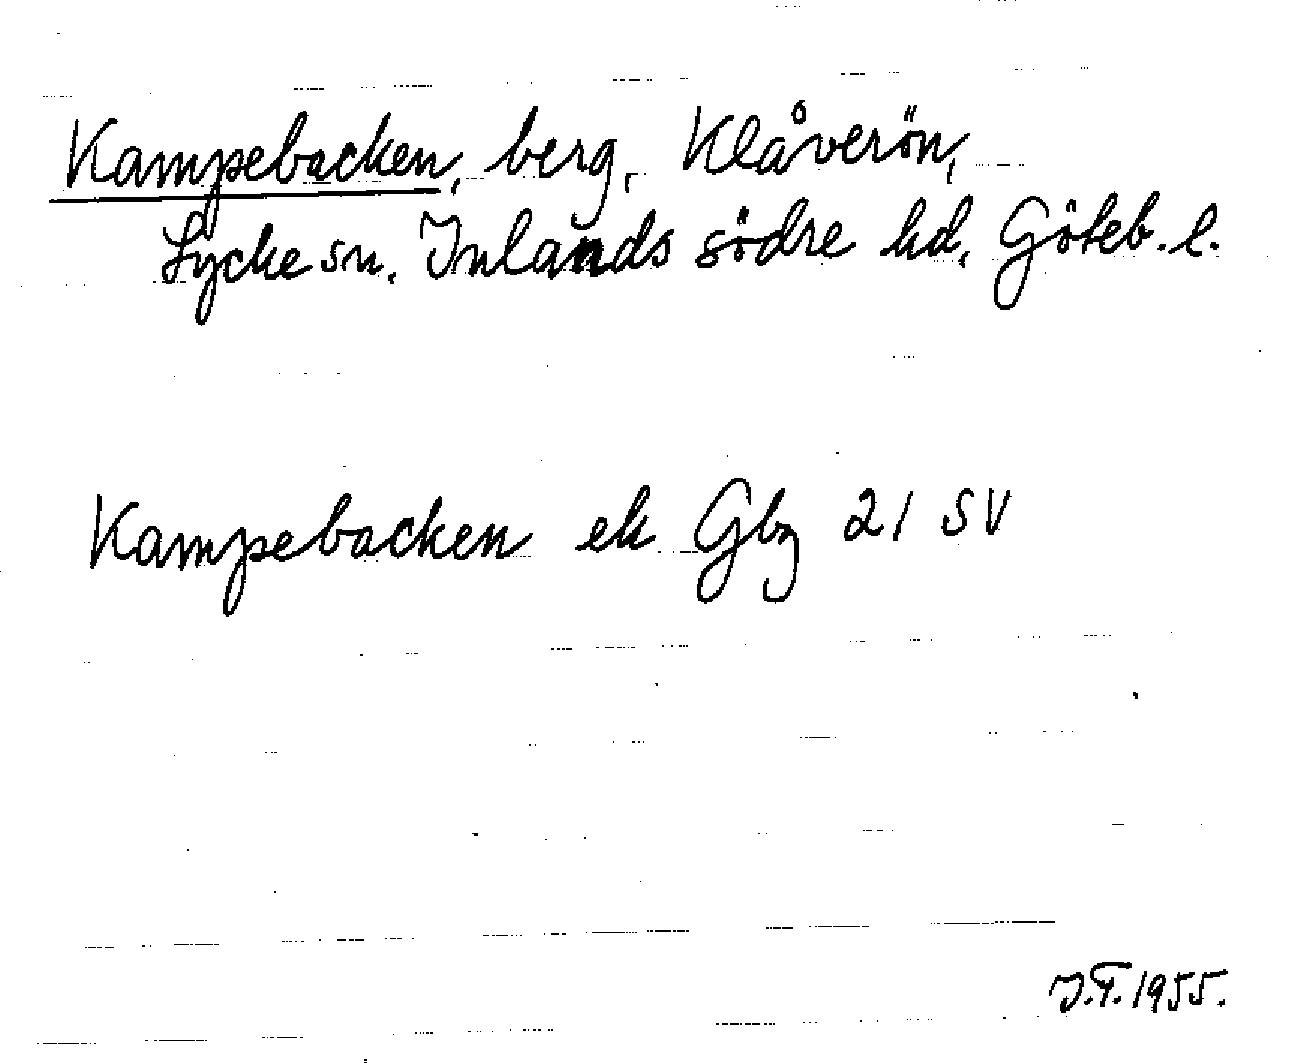 Kampebacken, berg, Klåverön,
Lycke sn, Inlands södre hd, Göteb. l.
Kampebacken ek Gbg 21 SV
J.T. 1955.